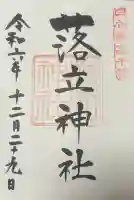 落立神社
令和六年十二月二十九日